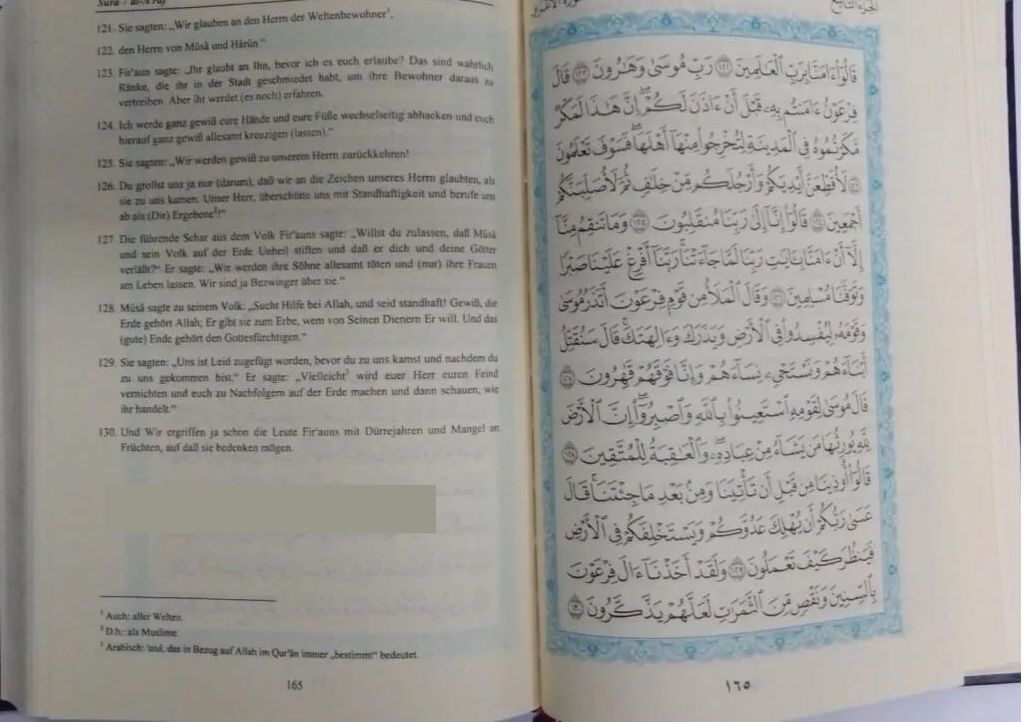 Sura 7 al-A'rāf
121. Sie sagten: „Wir glauben an den Herrn der Weltenbewohner¹,
122. den Herrn von Mūsā und Hārūn.“
123. Fir'aun sagte: „Ihr glaubt an Ihn, bevor ich es euch erlaube? Das sind wahrlich
Ränke, die ihr in der Stadt geschmiedet habt, um ihre Bewohner daraus zu
vertreiben. Aber ihr werdet (es noch) erfahren.
124. Ich werde ganz gewiß eure Hände und eure Füße wechselseitig abhacken und euch
hierauf ganz gewiß allesamt kreuzigen (lassen).“
125. Sie sagten: „Wir werden gewiß zu unserem Herrn zurückkehren!
126. Du grollst uns ja nur (darum), daß wir an die Zeichen unseres Herrn glaubten, als
sie zu uns kamen. Unser Herr, überschütte uns mit Standhaftigkeit und berufe uns
ab als (Dir) Ergebene²!“
127. Die führende Schar aus dem Volk Fir'auns sagte: „Willst du zulassen, daß Mūsā
und sein Volk auf der Erde Unheil stiften und daß er dich und deine Götter
verläßt?“ Er sagte: „Wir werden ihre Söhne allesamt töten und (nur) ihre Frauen
am Leben lassen. Wir sind ja Bezwinger über sie.“
128. Mūsā sagte zu seinem Volk: „Sucht Hilfe bei Allah, und seid standhaft! Gewiß, die
Erde gehört Allah; Er gibt sie zum Erbe, wem von Seinen Dienern Er will. Und das
(gute) Ende gehört den Gottesfürchtigen.“
129. Sie sagten: „Uns ist Leid zugefügt worden, bevor du zu uns kamst und nachdem du
zu uns gekommen bist.“ Er sagte: „Vielleicht³ wird euer Herr euren Feind
vernichten und euch zu Nachfolgern auf der Erde machen und dann schauen, wie
ihr handelt.“
130. Und Wir ergriffen ja schon die Leute Fir'auns mit Dürrejahren und Mangel an
Früchten, auf daß sie bedenken mögen.
¹ Auch: aller Welten.
² D.h.: als Muslime.
³ Arabisch: 'asā, das in Bezug auf Allah im Qur'ān immer „bestimmt“ bedeutet.
165
الجزء التاسع
سورة الأعراف
قَالُوٓا۟ ءَامَنَّا بِرَبِّ ٱلْعَٰلَمِينَ ١٢١ رَبِّ مُوسَىٰ وَهَٰرُونَ ١٢٢ قَالَ
فِرْعَوْنُ ءَامَنتُم بِهِۦ قَبْلَ أَنْ ءَاذَنَ لَكُمْ ۖ إِنَّ هَٰذَا لَمَكْرٌ
مَّكَرْتُمُوهُ فِى ٱلْمَدِينَةِ لِتُخْرِجُوا۟ مِنْهَآ أَهْلَهَا ۖ فَسَوْفَ تَعْلَمُونَ
١٢٣ لَأُقَطِّعَنَّ أَيْدِيَكُمْ وَأَرْجُلَكُم مِّنْ خِلَٰفٍ ثُمَّ لَأُصَلِّبَنَّكُمْ
أَجْمَعِينَ ١٢٤ قَالُوٓا۟ إِنَّآ إِلَىٰ رَبِّنَا مُنقَلِبُونَ ١٢٥ وَمَا تَنقِمُ مِنَّآ
إِلَّآ أَنْ ءَامَنَّا بِـَٔايَٰتِ رَبِّنَا لَمَّا جَآءَتْنَا ۚ رَبَّنَآ أَفْرِغْ عَلَيْنَا صَبْرًا
وَتَوَفَّنَا مُسْلِمِينَ ١٢٦ وَقَالَ ٱلْمَلَأُ مِن قَوْمِ فِرْعَوْنَ أَتَذَرُ مُوسَىٰ
وَقَوْمَهُۥ لِيُفْسِدُوا۟ فِى ٱلْأَرْضِ وَيَذَرَكَ وَءَالِهَتَكَ ۚ قَالَ سَنُقَتِّلُ
أَبْنَآءَهُمْ وَنَسْتَحْىِۦ نِسَآءَهُمْ وَإِنَّا فَوْقَهُمْ قَٰهِرُونَ ١٢٧
قَالَ مُوسَىٰ لِقَوْمِهِ ٱسْتَعِينُوا۟ بِٱللَّهِ وَٱصْبِرُوٓا۟ ۖ إِنَّ ٱلْأَرْضَ
لِلَّهِ يُورِثُهَا مَن يَشَآءُ مِنْ عِبَادِهِۦ ۖ وَٱلْعَٰقِبَةُ لِلْمُتَّقِينَ ١٢٨
قَالُوٓا۟ أُوذِينَا مِن قَبْلِ أَن تَأْتِيَنَا وَمِنۢ بَعْدِ مَا جِئْتَنَا ۚ قَالَ
عَسَىٰ رَبُّكُمْ أَن يُهْلِكَ عَدُوَّكُمْ وَيَسْتَخْلِفَكُمْ فِى ٱلْأَرْضِ
فَيَنظُرَ كَيْفَ تَعْمَلُونَ ١٢٩ وَلَقَدْ أَخَذْنَآ ءَالَ فِرْعَوْنَ
بِٱلسِّنِينَ وَنَقْصٍ مِّنَ ٱلثَّمَرَٰتِ لَعَلَّهُمْ يَذَّكَّرُونَ ١٣٠
١٦٥